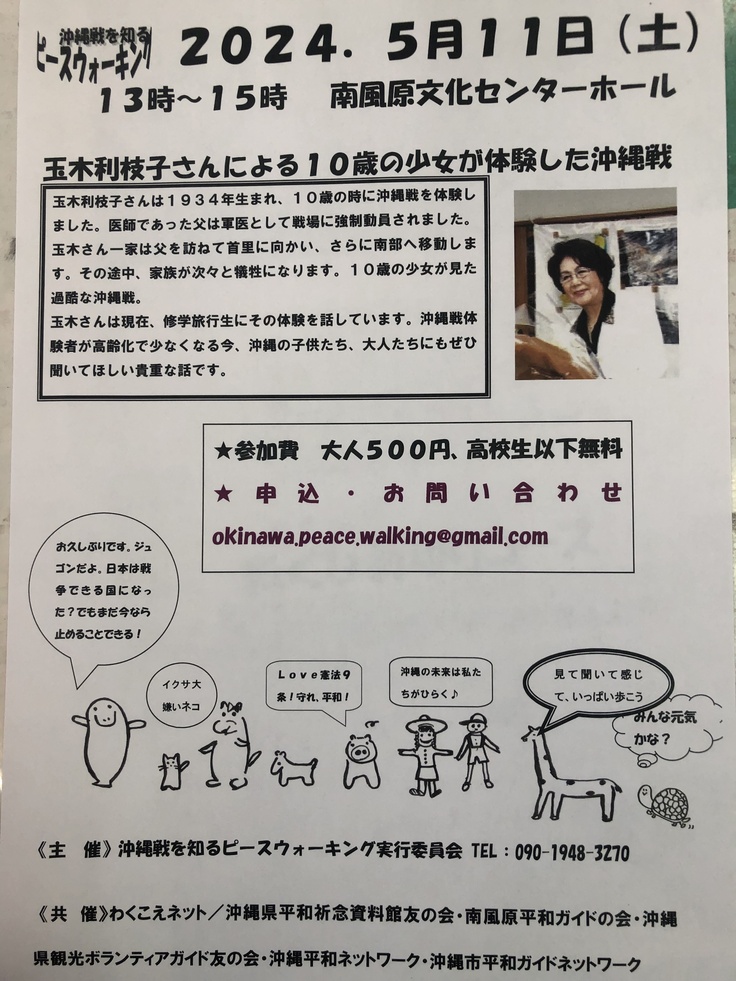 沖縄戦を知る
ピースウォーキング
２０２４．５月１１日（土）
１３時～１５時　南風原文化センターホール
玉木利枝子さんによる１０歳の少女が体験した沖縄戦
玉木利枝子さんは１９３４年生まれ、１０歳の時に沖縄戦を体験し
ました。医師であった父は軍医として戦場に強制動員されました。
玉木さん一家は父を訪ねて首里に向かい、さらに南部へ移動しま
す。その途中、家族が次々と犠牲になります。１０歳の少女が見た
過酷な沖縄戦。
玉木さんは現在、修学旅行生にその体験を話しています。沖縄戦体
験者が高齢化で少なくなる今、沖縄の子供たち、大人たちにもぜひ
聞いてほしい貴重な話です。
★参加費　大人５００円、高校生以下無料
★申込・お問い合わせ
okinawa.peace.walking@gmail.com
お久しぶりです。ジュ
ゴンだよ。日本は戦
争できる国になっ
た？でもまだ今なら
止めることできる！
イクサ大
嫌いネコ
Ｌｏｖｅ憲法９
条！守れ、平和！
沖縄の未来は私た
ちがひらく♪
見て聞いて感じ
て、いっぱい歩こう
みんな元気
かな？
《主　催》沖縄戦を知るピースウォーキング実行委員会 TEL：090-1948-3270
《共　催》わくこえネット／沖縄県平和祈念資料館友の会・南風原平和ガイドの会・沖縄
県観光ボランティアガイド友の会・沖縄平和ネットワーク・沖縄市平和ガイドネットワーク